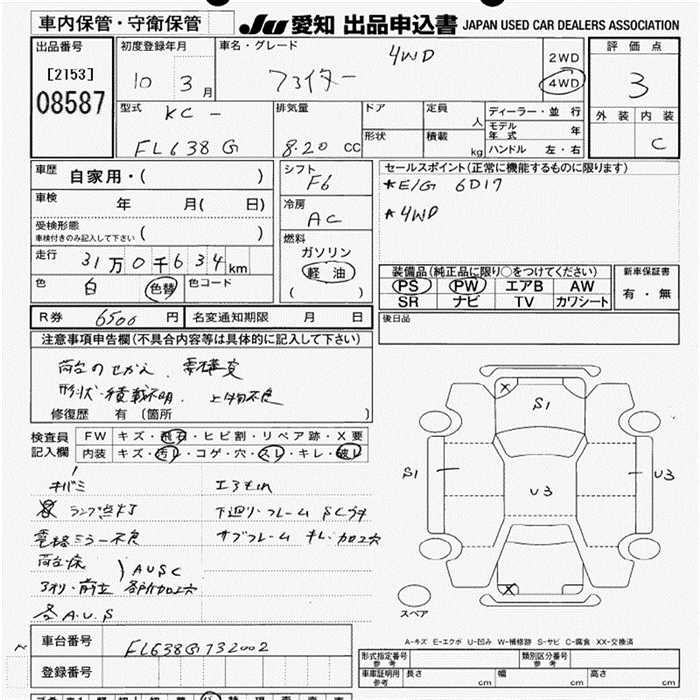 車内保管・守衛保管 JU 愛知 出品申込書 JAPAN USED CAR DEALERS ASSOCIATION
出品番号 初度登録年月 車名・グレード 4WD 2WD 評価点
[2153] 10 3 月 ファイター 4WD 3
08587 型式 KC- 排気量 ドア 定員 人 ディーラー・並行 外装 内装
モデル年式 年
FL638G 8.20 CC 形状 積載 kg ハンドル 左・右 C
車歴 自家用・( ) シフト F6 セールスポイント(正常に機能するものに限ります)
*E/G 6D17
車検 年 月( 日) 冷房 AC *4WD
受検形態 車検付きのみ記入して下さい ( ) 燃料
ガソリン
走行 31万0千634km 軽油 装備品(純正品に限り○をつけてください) 新車保証書
色 白 色替 色コード ( ) PS PW エアB AW 有・無
SR ナビ TV カワシート
R券 6500 円 名変通知期限 月 日 後日品
注意事項申告欄(不具合内容等は具体的に記入して下さい)
荷台のせかえ 要構変
形状・積載不明 上物不良
修復歴 有 (箇所 )
検査員 FW キズ・飛石・ヒビ割・リペア跡・X要
記入欄 内装 キズ・汚レ・コゲ・穴・スレ・キレ・破レ
X S1
S1 U3 U3
X
キバミ
ランプ点灯 下廻り・フレーム SCサキ
電格ミラー不良 サブフレーム キレ・加工穴
荷台床
アオリ・前立 )AUSC 各所加工穴
各A.U.S
スペア
A-キズ E-エクボ U-凹み W-補修跡 S-サビ C-腐食 XX-交換済
車台番号 FL638G732002
登録番号
形式指定番号 参考 類別区分番号 参考
車庫証明用 参考 長さ cm 幅 cm 高さ cm